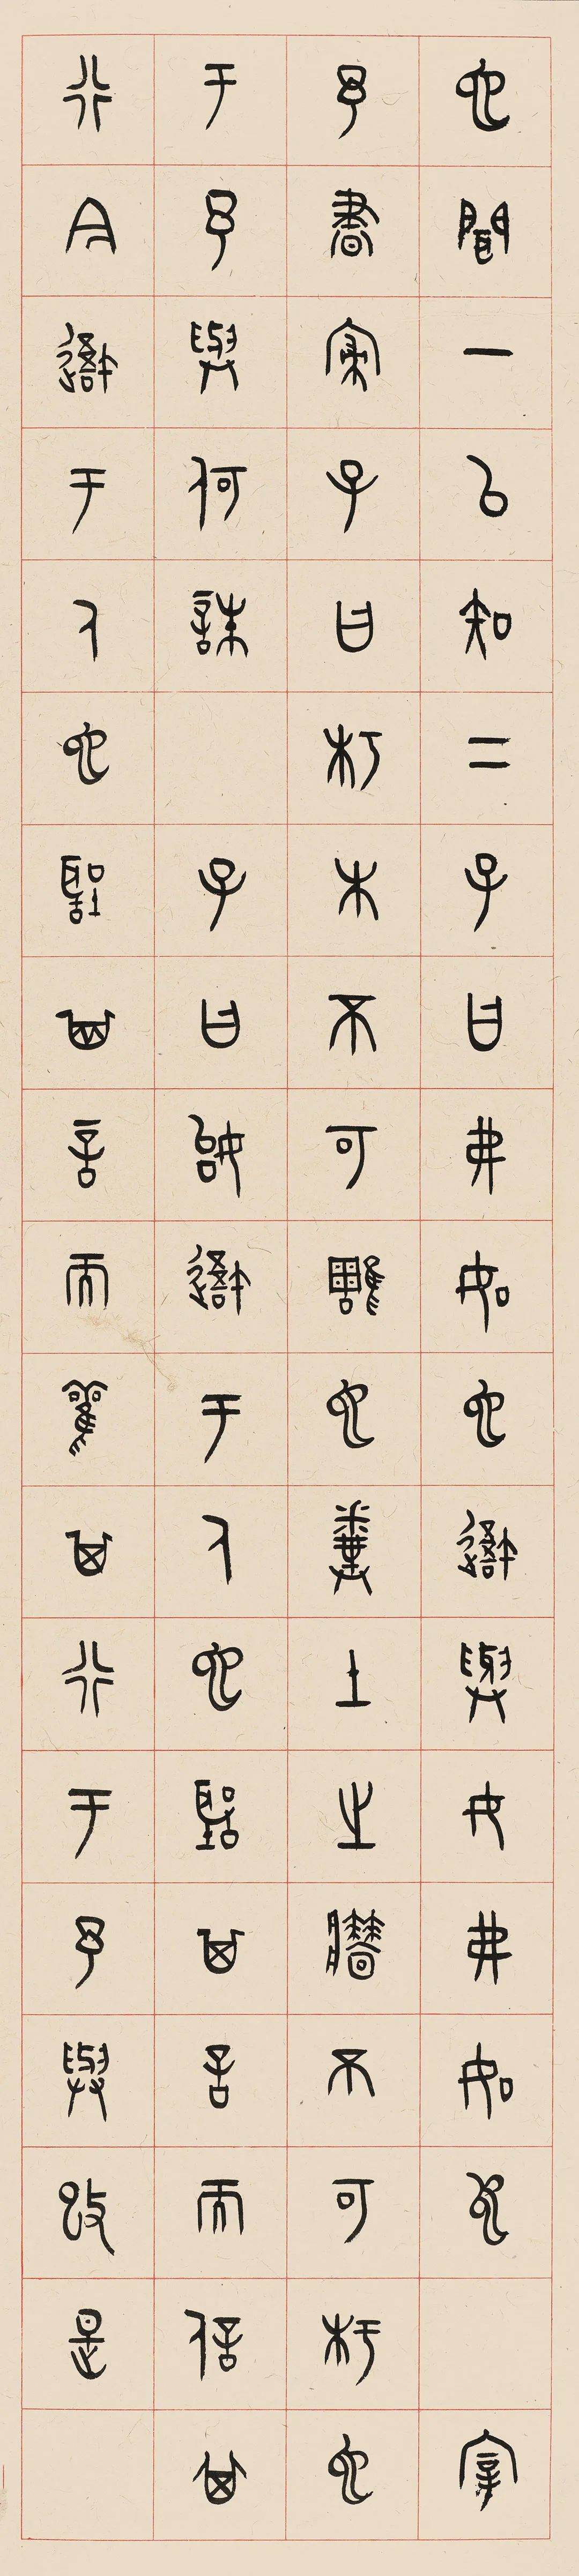 也聞一以知二子曰弗如也吾與女弗如也 宰
予晝寢子曰朽木不可雕也糞土之牆不可杇也
于予與何誅 子曰始吾于人也聽其言而信其
行今吾于人也聽其言而觀其行于予與改是